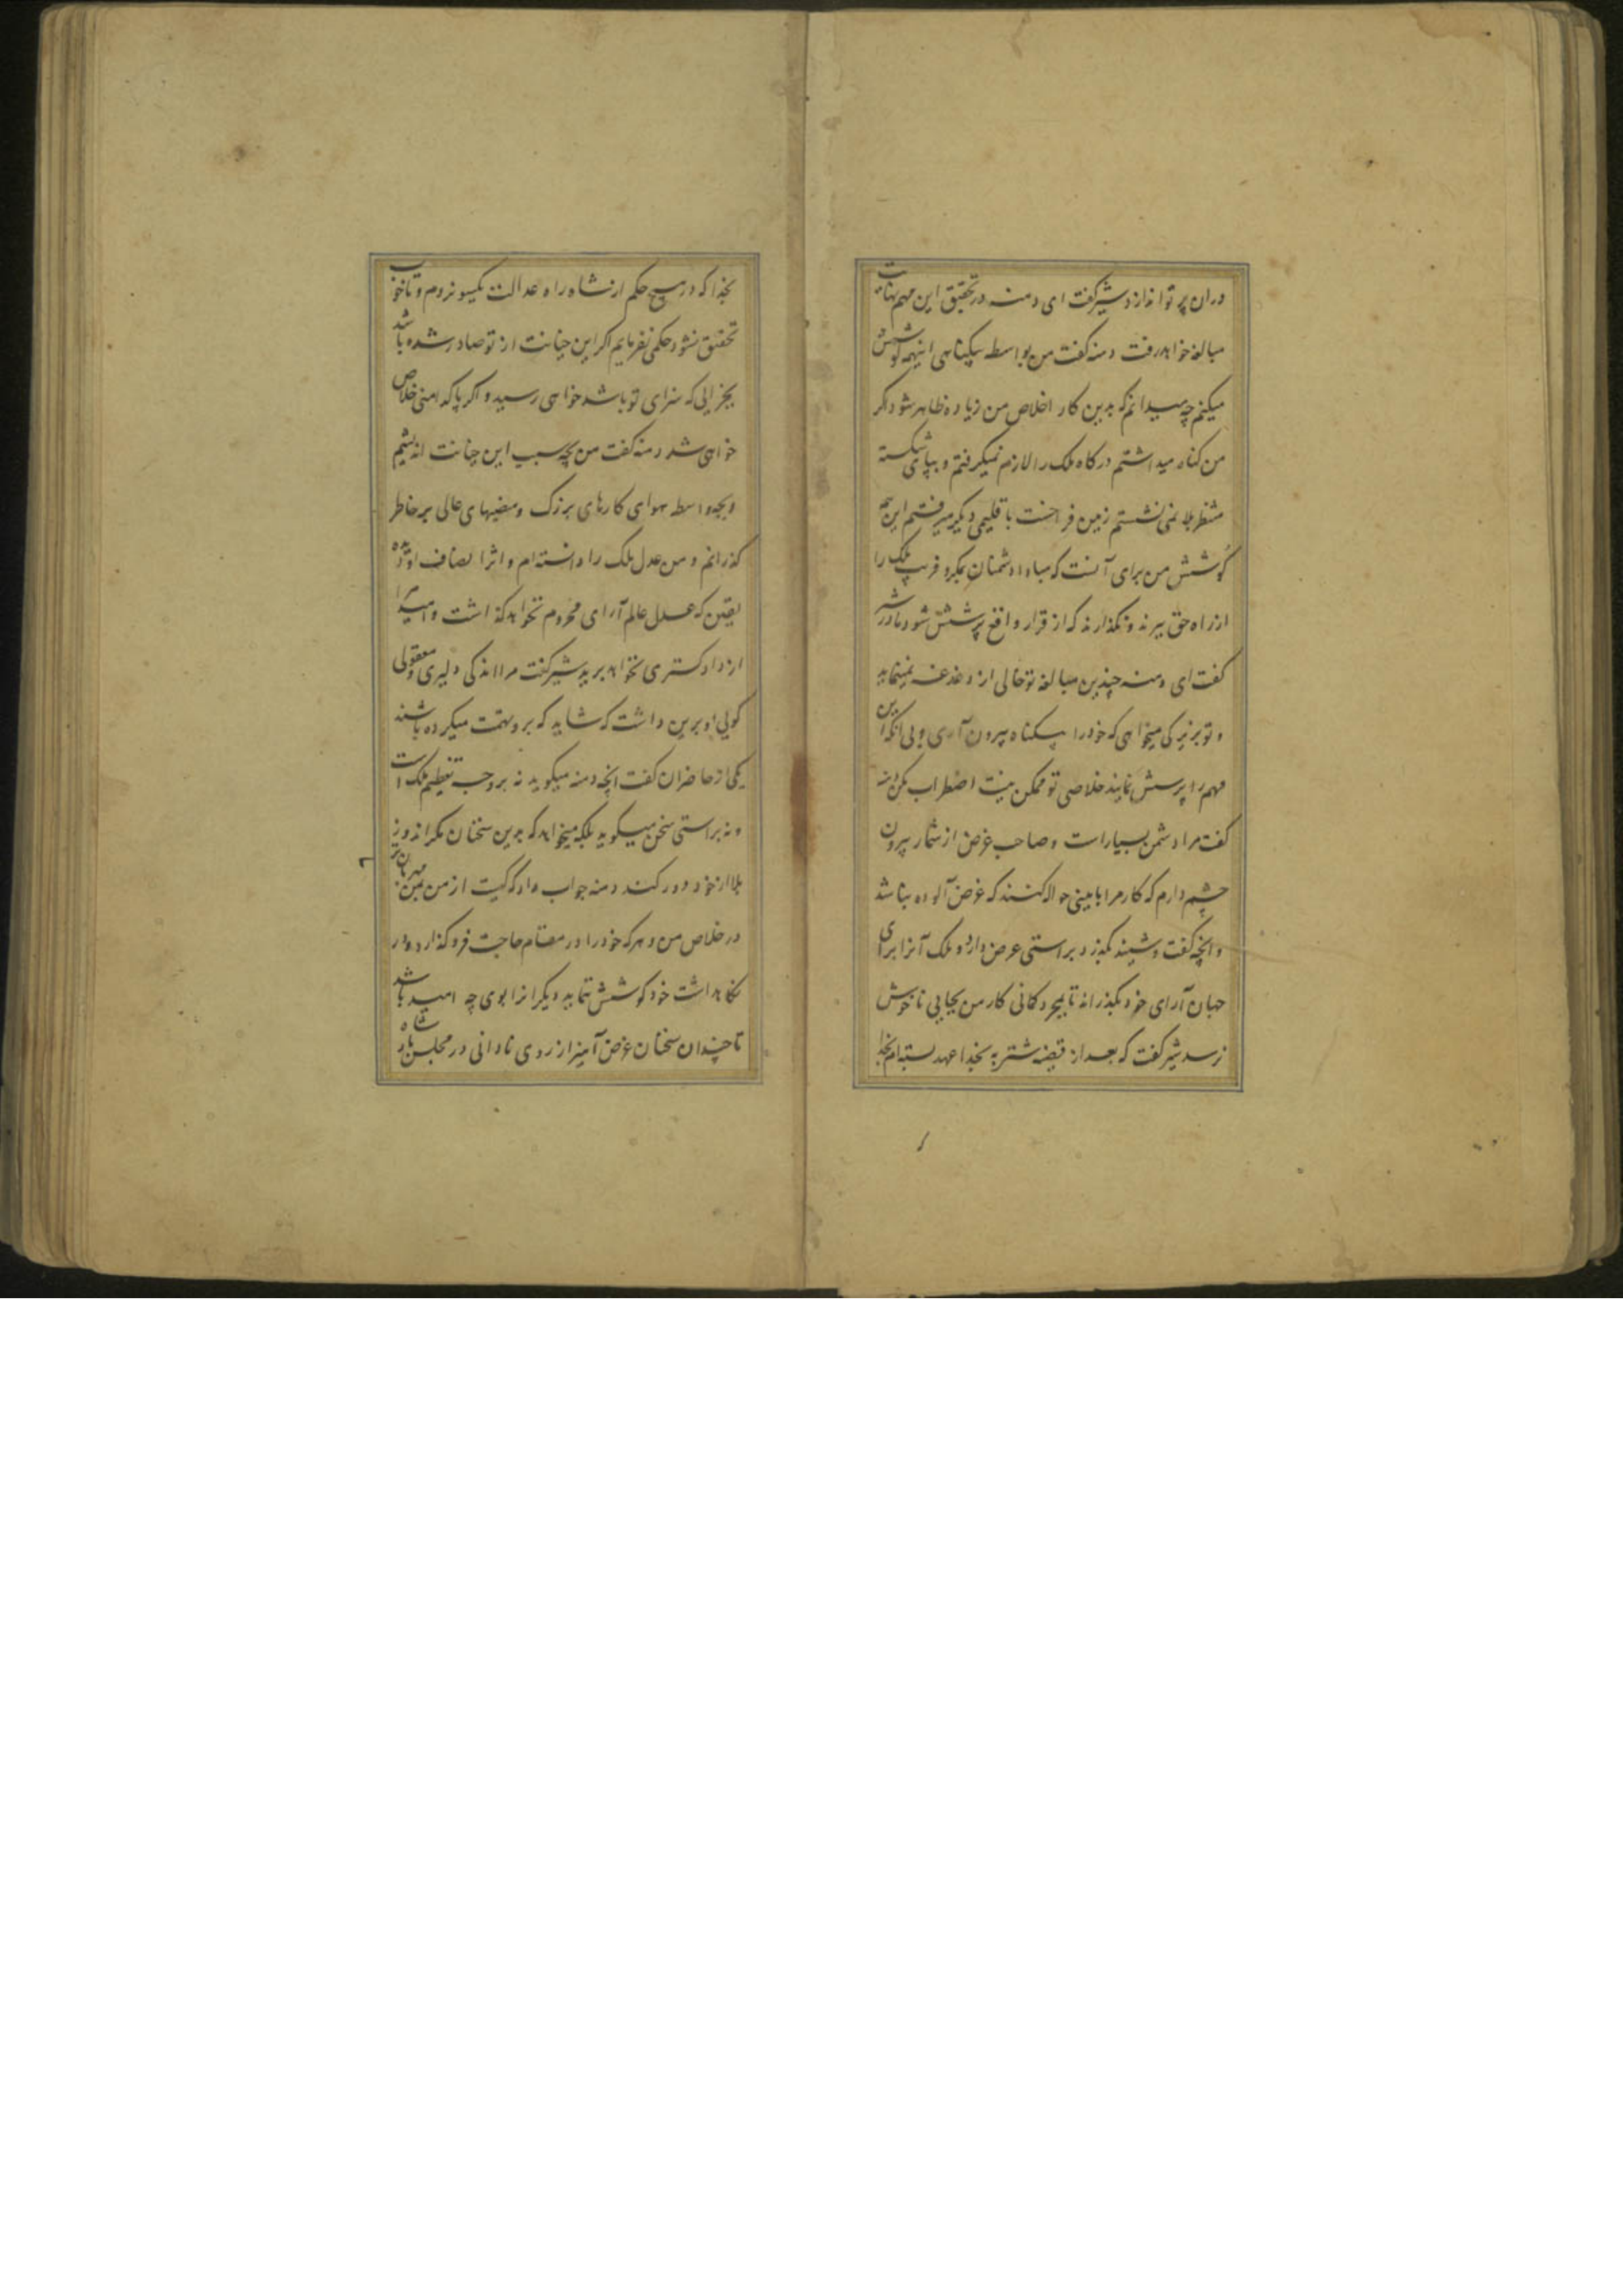 دران پرتو اندازد شیر گفت ای دمنه در تحقیق این مهم نهایت
مبالغه خواهد رفت دمنه گفت من بواسطه بیکناهی اینهمه کوشش
میکنم چه میدانم که بدین کار اخلاص من زیاده ظاهر شود اکر
من کناه میداشتم درکاه ملک را لازم نمیکرفتم و بپای شکسته
منتظر بلا نمی نشستم زمین فراخست باقلیمی دیکر میرفتم این همه
کوشش من برای آنست که مبادا دشمنان بمکر و فریب ملک را
از راه حق ببرند و نکذارند که از قرار واقع پرسشش شود مادر شیر
کفت ای دمنه چندین مبالغه تو خالی از دغدغه نمینماید
و تو بزیرکی میخواهی که خود را بیکناه بیرون آری و بی آنکه این
مهم را پرسش نمایند خلاصی تو ممکن نیست اضطراب مکن دمنه
کفت مرا دشمن بسیار است و صاحب غرض از شمار بیرون
چشم دارم که کار مرا بامینی حواله کنند که غرض آلوده نباشد
و آنچه کفت و شنید بکذرد براستی عرض دارد و ملک آنرا برای
جهان آرای خود بکذراند تا بمجرد کمانی کار من بجایی ناخوش
نرسد شیر کفت که بعد از قضیه شنزبه بخدا عهد بسته ام
بخدا که در هیچ حکم از شاه راه عدالت یکسو نروم و تا خوب
تحقیق نشود حکمی نفرمایم اکر این خیانت از تو صادر شده باشد
بجزایی که سزای تو باشد خواهی رسید و اکر پاکدامنی خلاص
خواهی شد دمنه کفت من بچه سبب این خیانت اندیشم
و بچه واسطه هوای کارهای بزرک و منصبهای عالی بر خاطر
کذرانم و من عدل ملک را دانسته ام و اثر انصاف او دیده
یقین که عدل عالم آرای محروم نخواهد کذاشت و امید مرا
از دادکستری نخواهد برید شیر کفت مرا اندکی دلیری و معقولی
کویی او برین داشت که شاید که برو تهمت میکرده باشند
یکی از حاضران کفت آنچه دمنه میکوید نه بر وجه تعظیم ملک است
و نه براستی سخن میکوید بلکه میخواهد که بدین سخنان مکر اندوز
بلا از خود دور کند دمنه جواب داد که کیست از من بمن مهربان تر
در خلاص من و هر که خود را در مقام حاجت فرو کذارد و در
نکاهداشت خود کوشش ننماید دیکرانرا بوی چه امید باشد
تا چندان سخنان غرض آمیز از روی نادانی در مجلس شاه